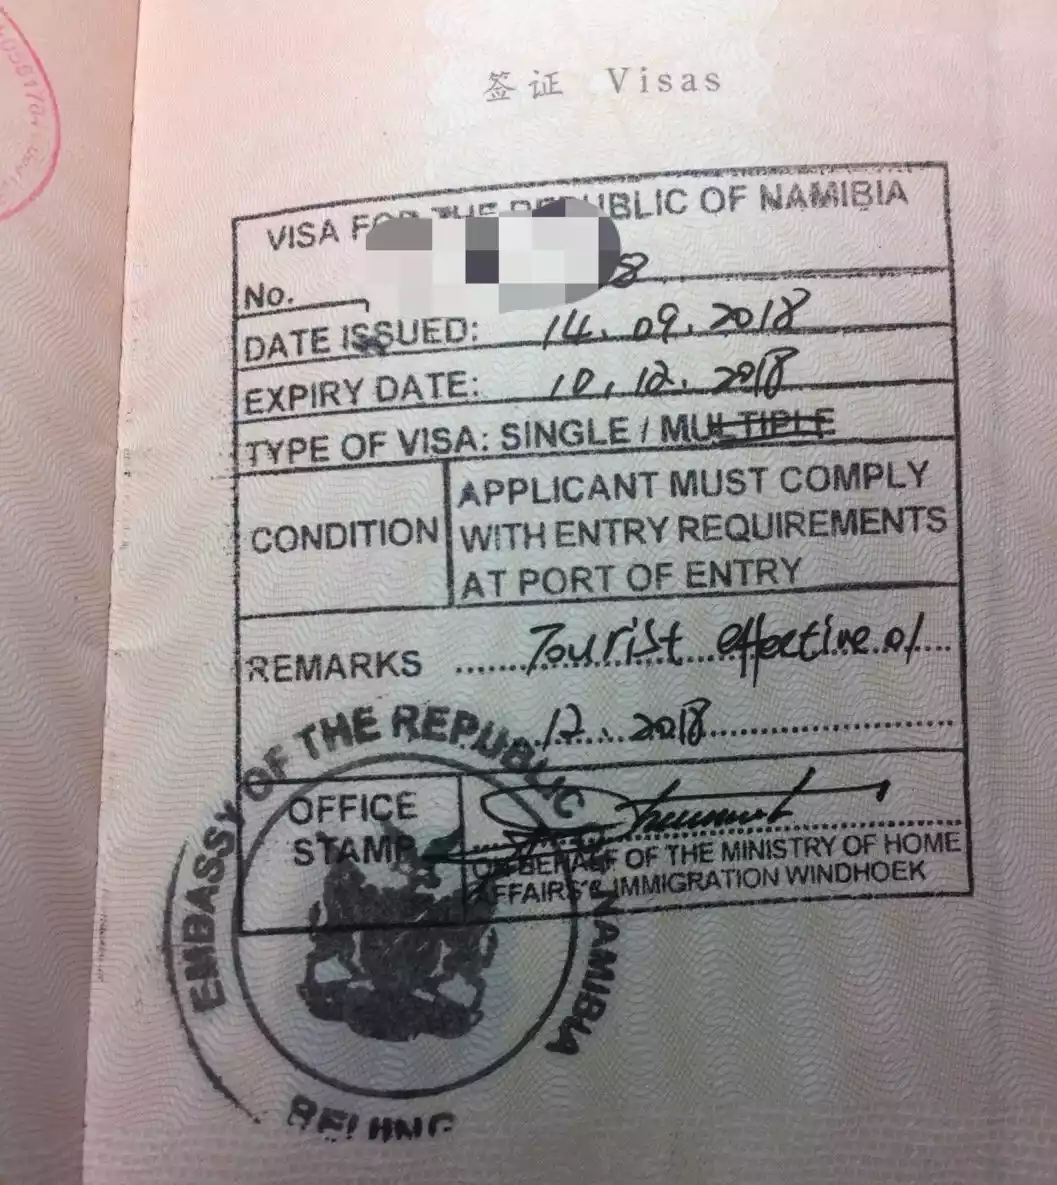 签证 Visas
VISA FOR THE REPUBLIC OF NAMIBIA
No. 8
DATE ISSUED: 14.09.2018
EXPIRY DATE: 10.12.2018
TYPE OF VISA: SINGLE / MULTIPLE
CONDITION
APPLICANT MUST COMPLY
WITH ENTRY REQUIREMENTS
AT PORT OF ENTRY
REMARKS Tourist effective
12.2018
OFFICE
STAMP
ON BEHALF OF THE MINISTRY OF HOME
AFFAIRS & IMMIGRATION WINDHOEK
EMBASSY OF THE REPUBLIC NAMIBIA
BEIJING